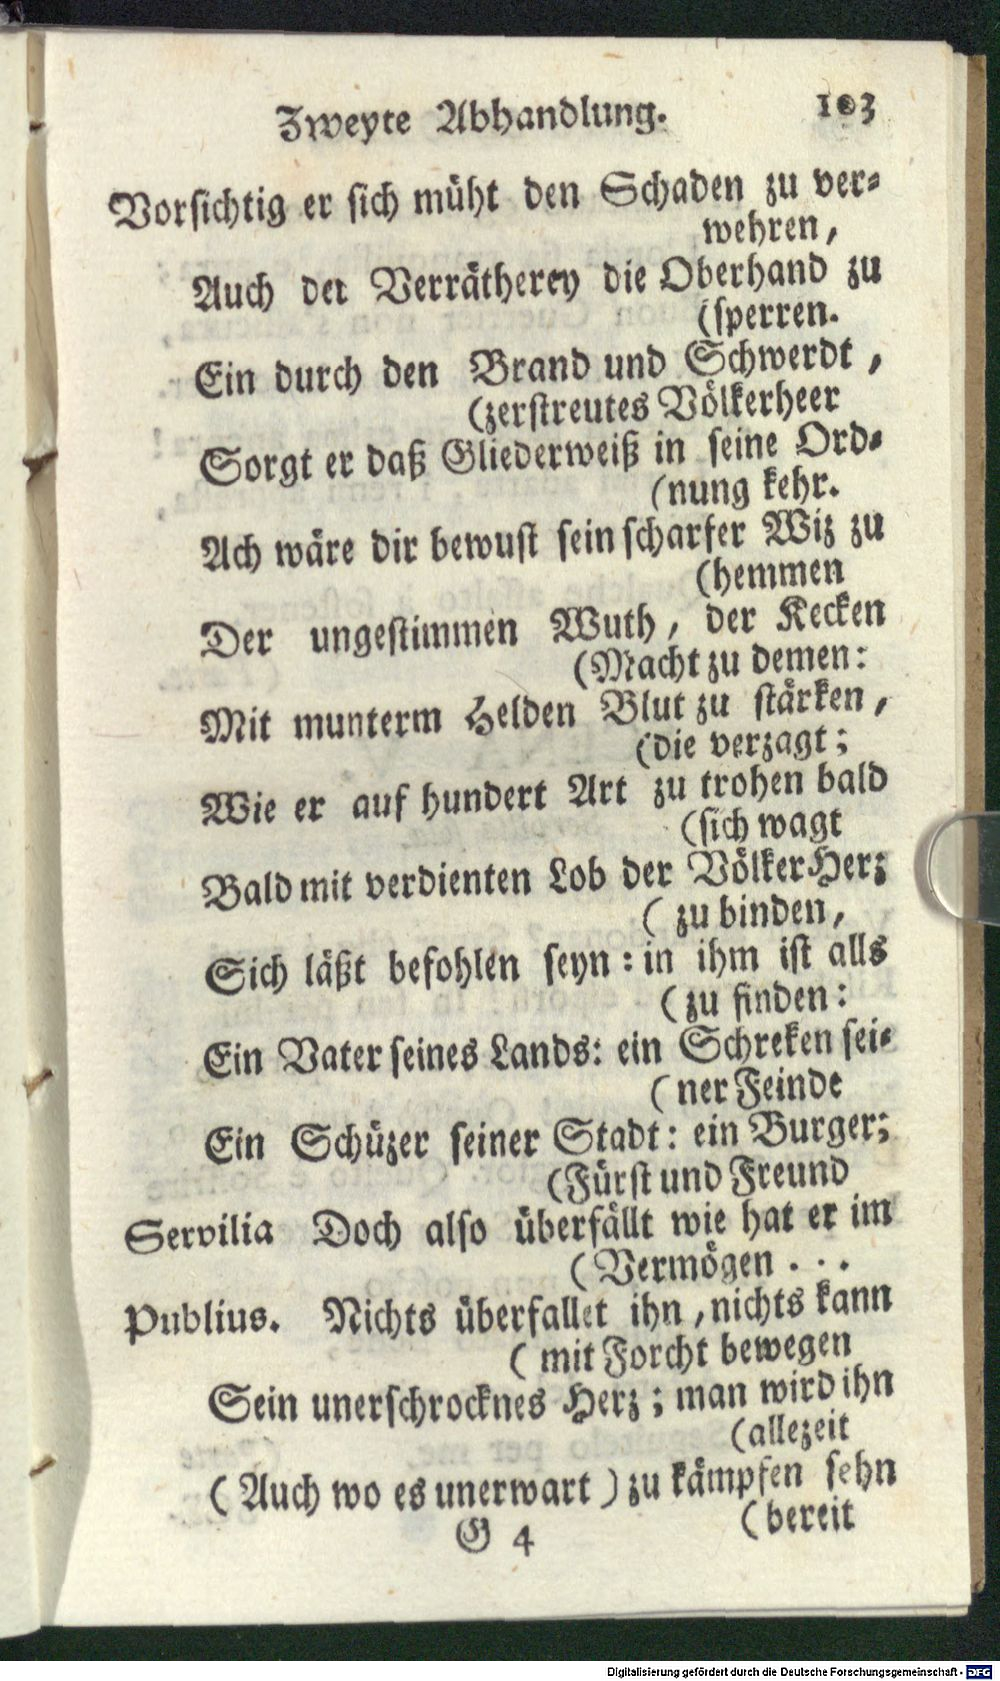 Zweyte Abhandlung. 103
Vorsichtig er sich müht den Schaden zu ver-
wehren,
Auch der Verrätherey die Oberhand zu
(sperren.
Ein durch den Brand und Schwerdt,
(zerstreutes Völkerheer
Sorgt er daß Gliederweiß in seine Ord-
(nung kehr.
Ach wäre dir bewust sein scharfer Wiz zu
(hemmen
Der ungestimmen Wuth, der Kecken
(Macht zu demen:
Mit munterm Helden Blut zu stärken,
(die verzagt;
Wie er auf hundert Art zu trohen bald
(sich wagt
Bald mit verdienten Lob der Völker Herz
( zu binden,
Sich läßt befohlen seyn: in ihm ist alls
( zu finden:
Ein Vater seines Lands: ein Schreken sei-
( ner Feinde
Ein Schüzer seiner Stadt: ein Burger;
(Fürst und Freund
Servilia Doch also überfällt wie hat er im
( Vermögen . . .
Publius. Nichts überfallet ihn, nichts kann
( mit Forcht bewegen
Sein unerschrocknes Herz; man wird ihn
(allezeit
( Auch wo es unerwart ) zu kämpfen sehn
( bereit
G 4
Digitalisierung gefördert durch die Deutsche Forschungsgemeinschaft - DFG